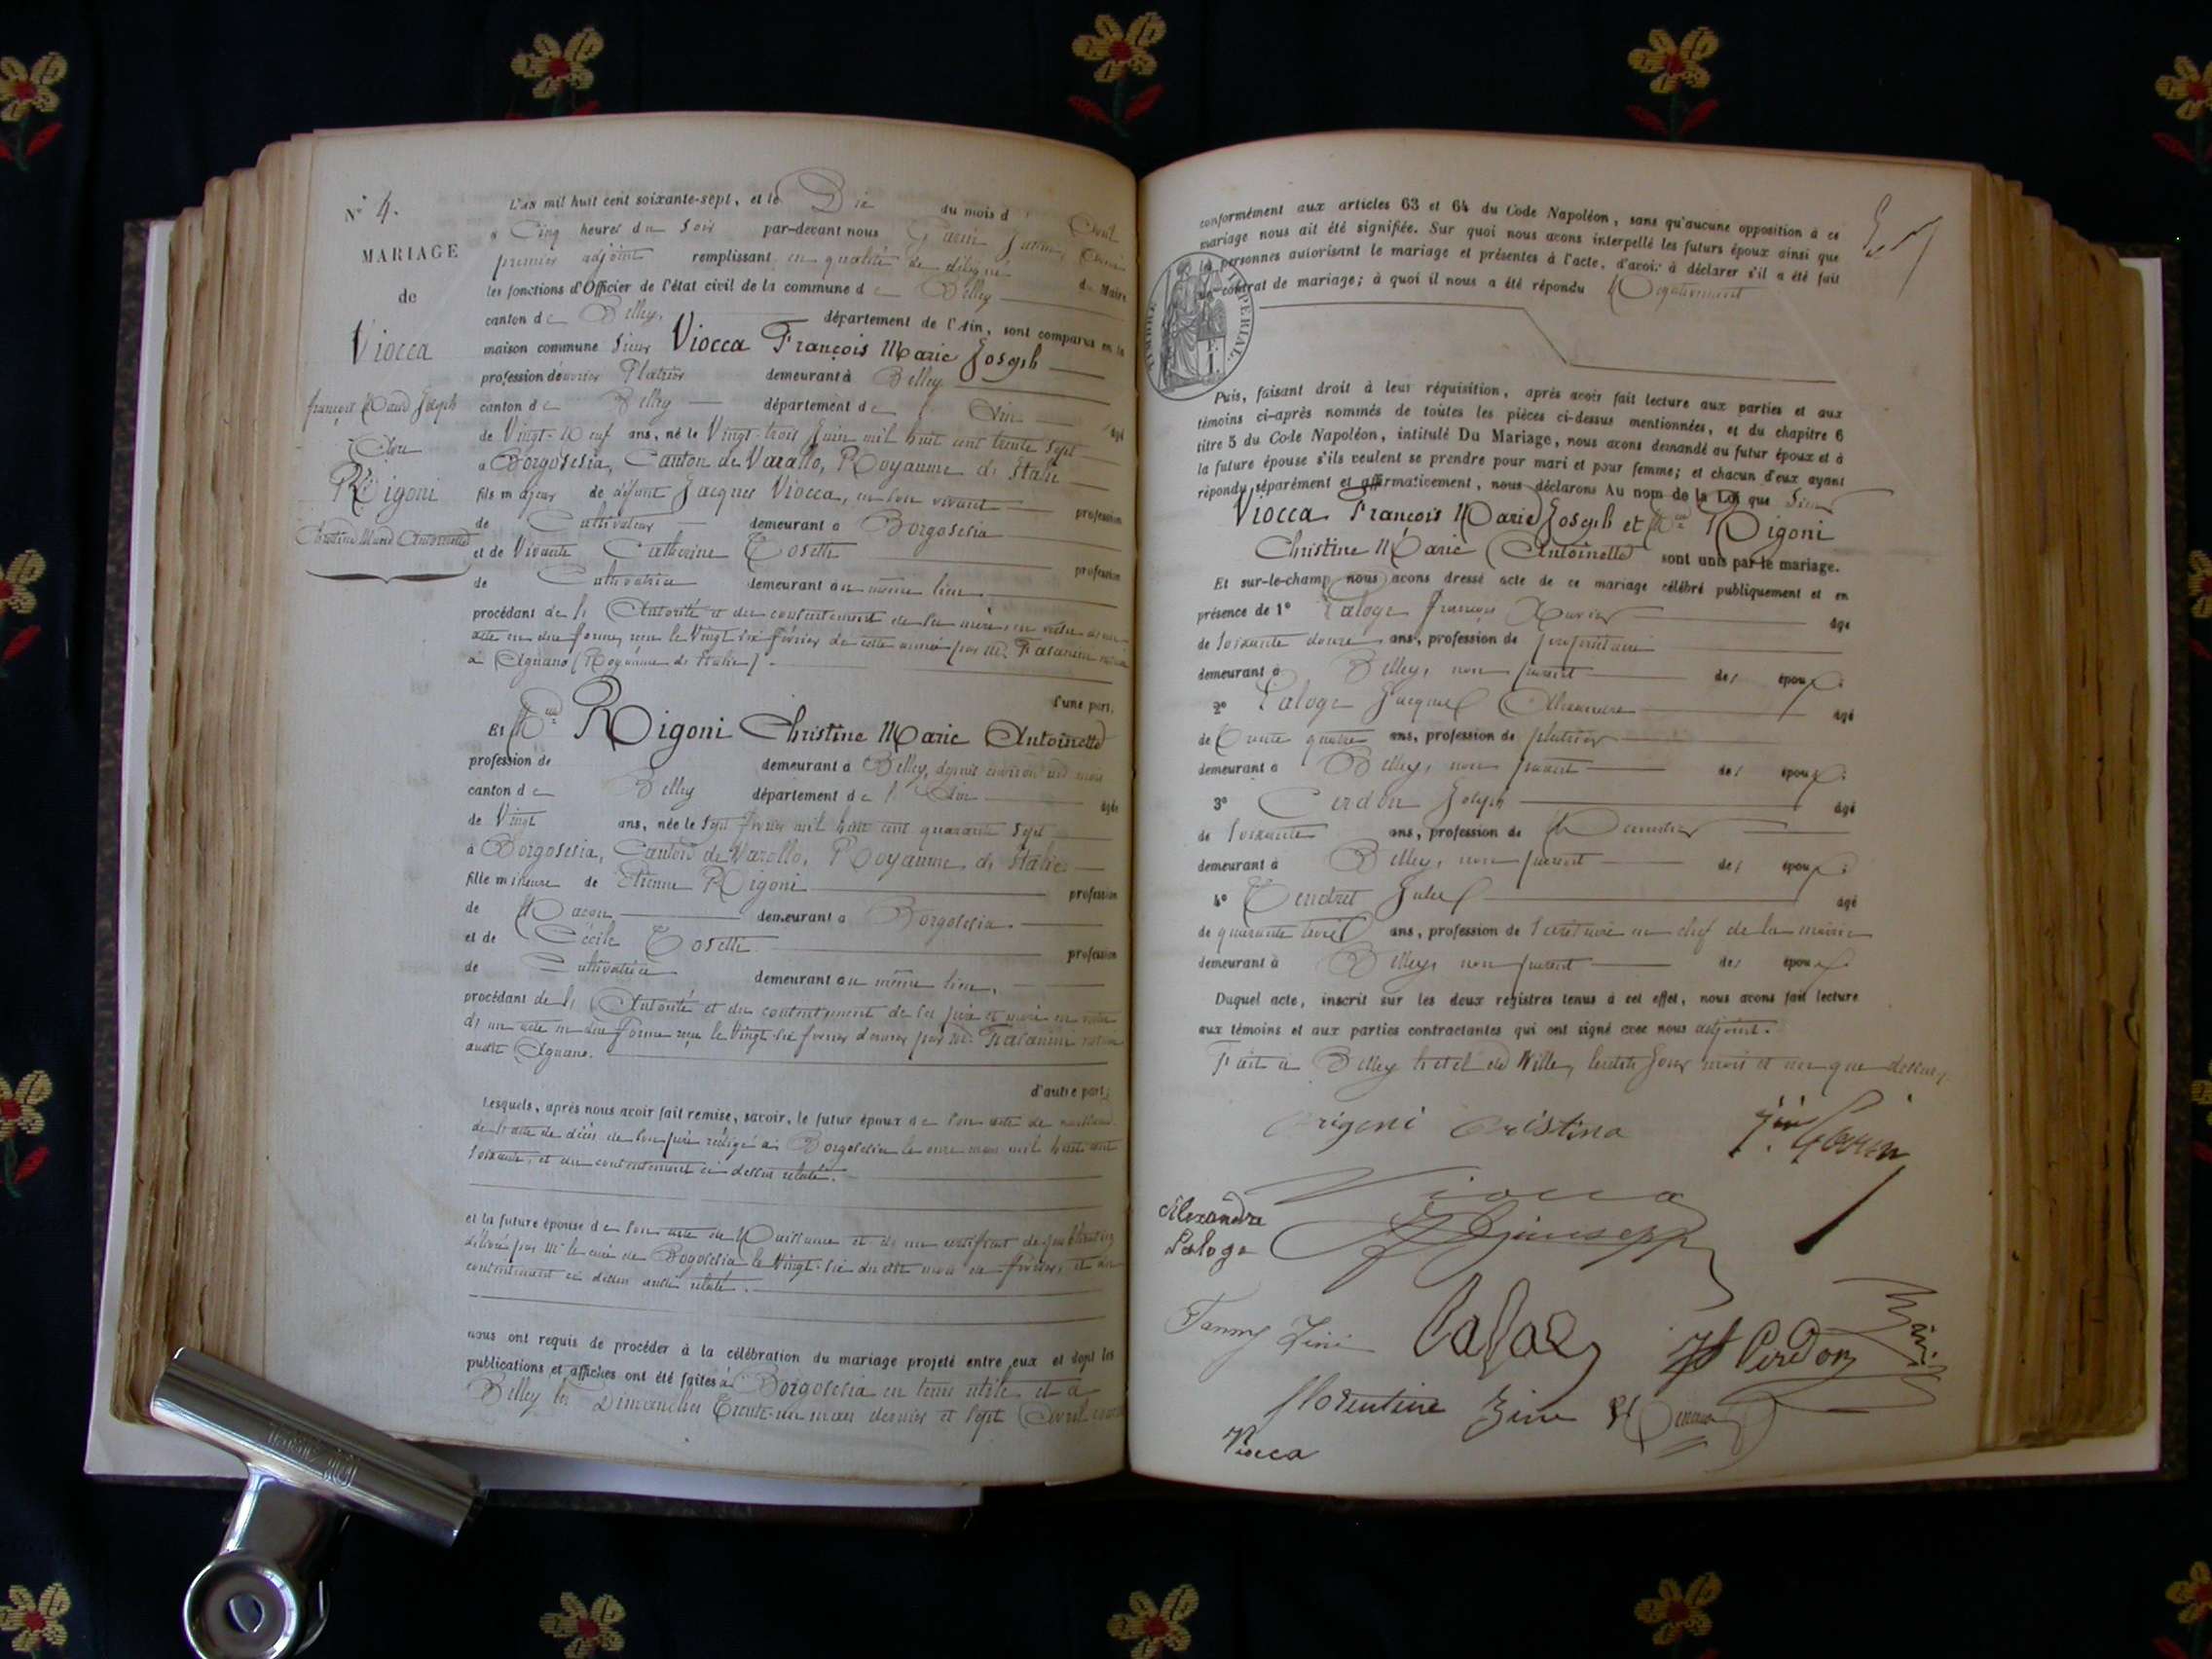 N° 4.
MARIAGE
de
Viocca
françois Marie Joseph
Avec
Rigoni
Christine Marie Antoinette
L'an mil huit cent soixante-sept, et le Dix du mois d'Avril
à Cinq heures du Soir par-devant nous
premier adjoint remplissant en qualité de délégué du Maire
les fonctions d'Officier de l'état civil de la commune de Belley
canton de Belley, département de l'Ain, sont comparus en la
maison commune Sieur Viocca François Marie Joseph
profession de ouvrier Platrier demeurant à Belley
canton de Belley département de l'Ain âgé
de Vingt-Neuf ans, né le Vingt-trois Juin mil huit cent trente sept
à Borgosesia, Canton de Varallo, Royaume d'Italie
fils majeur de défunt Jacques Viocca, en son vivant profession
de Cultivateur demeurant à Borgosesia
et de Vivante Catherine Tosetti profession
de Cultivatrice demeurant au même lieu.
procédant de l'Autorité et du consentement de sa mère, en vertu d'un
acte en due forme, reçu le Vingt six février de cette année par Me
à Agnano (Royaume d'Italie).
d'une part,
Et Melle Rigoni Christine Marie Antoinette
profession de demeurant à Belley, depuis environ un mois
canton de Belley département de l'Ain âgée
de Vingt ans, née le Sept février mil huit cent quarante sept
à Borgosesia, Canton de Varallo, Royaume d'Italie
fille mineure de Etienne Rigoni profession
de Maçon demeurant à Borgosesia.
et de Cécile Tosetti profession
de Cultivatrice demeurant au même lieu.
procédant de l'Autorité et du consentement de ses père et mère en vertu
d'un acte en due forme reçu le Vingt-six février dernier par Me notaire
audit Agnano.
d'autre part;
Lesquels, après nous avoir fait remise, savoir, le futur époux de son acte de naissance
de l'acte de décès de son père rédigé à Borgosesia le onze mars mil huit cent
soixante, et du consentement ci dessus relaté.
et la future épouse de son acte de Naissance et d'un certificat de publication
délivré par Mr le curé de Borgosesia le Vingt-six du dit mois de février, et du
consentement ci dessus aussi relaté.
nous ont requis de procéder à la célébration du mariage projeté entre eux et dont les
publications et affiches ont été faites à Borgosesia en tems utile et à
Belley les Dimanches Trente-un mars dernier et Sept Avril
conformément aux articles 63 et 64 du Code Napoléon, sans qu'aucune opposition à ce
mariage nous ait été signifiée. Sur quoi nous avons interpellé les futurs époux ainsi que
les personnes autorisant le mariage et présentes à l'acte, d'avoir à déclarer s'il a été fait
un contrat de mariage; à quoi il nous a été répondu Négativement
TIMBRE IMPERIAL
Puis, faisant droit à leur réquisition, après avoir fait lecture aux parties et aux
témoins ci-après nommés de toutes les pièces ci-dessus mentionnées, et du chapitre 6
titre 5 du Code Napoléon, intitulé Du Mariage, nous avons demandé au futur époux et à
la future épouse s'ils veulent se prendre pour mari et pour femme; et chacun d'eux ayant
répondu séparément et affirmativement, nous déclarons Au nom de la Loi que Sieur
Viocca François Marie Joseph et Melle Rigoni
Christine Marie Antoinette sont unis par le mariage.
Et sur-le-champ nous avons dressé acte de ce mariage célébré publiquement et en
présence de 1° Laloge françois Xavier âgé
de soixante douze ans, profession de propriétaire
demeurant à Belley, non parent des époux.
2° Laloge Jacques Alexandre âgé
de Trente quatre ans, profession de platrier
demeurant à Belley, non parent des époux.
3° Cerdon Joseph âgé
de soixante ans, profession de Menuisier
demeurant à Belley, non parent des époux.
4° Tendret Jules âgé
de quarante trois ans, profession de Secrétaire en chef de la mairie
demeurant à Belley, non parent des époux.
Duquel acte, inscrit sur les deux registres tenus à cet effet, nous avons fait lecture
aux témoins et aux parties contractantes qui ont signé avec nous adjoint.
Fait à Belley hotel de Ville, lesdits jour mois et an que dessus.
rigoni cristina
Viocca
Giuseppe
Alexandre
Laloge
Fanny Zini
Cerdon
florentine Zini
Viocca